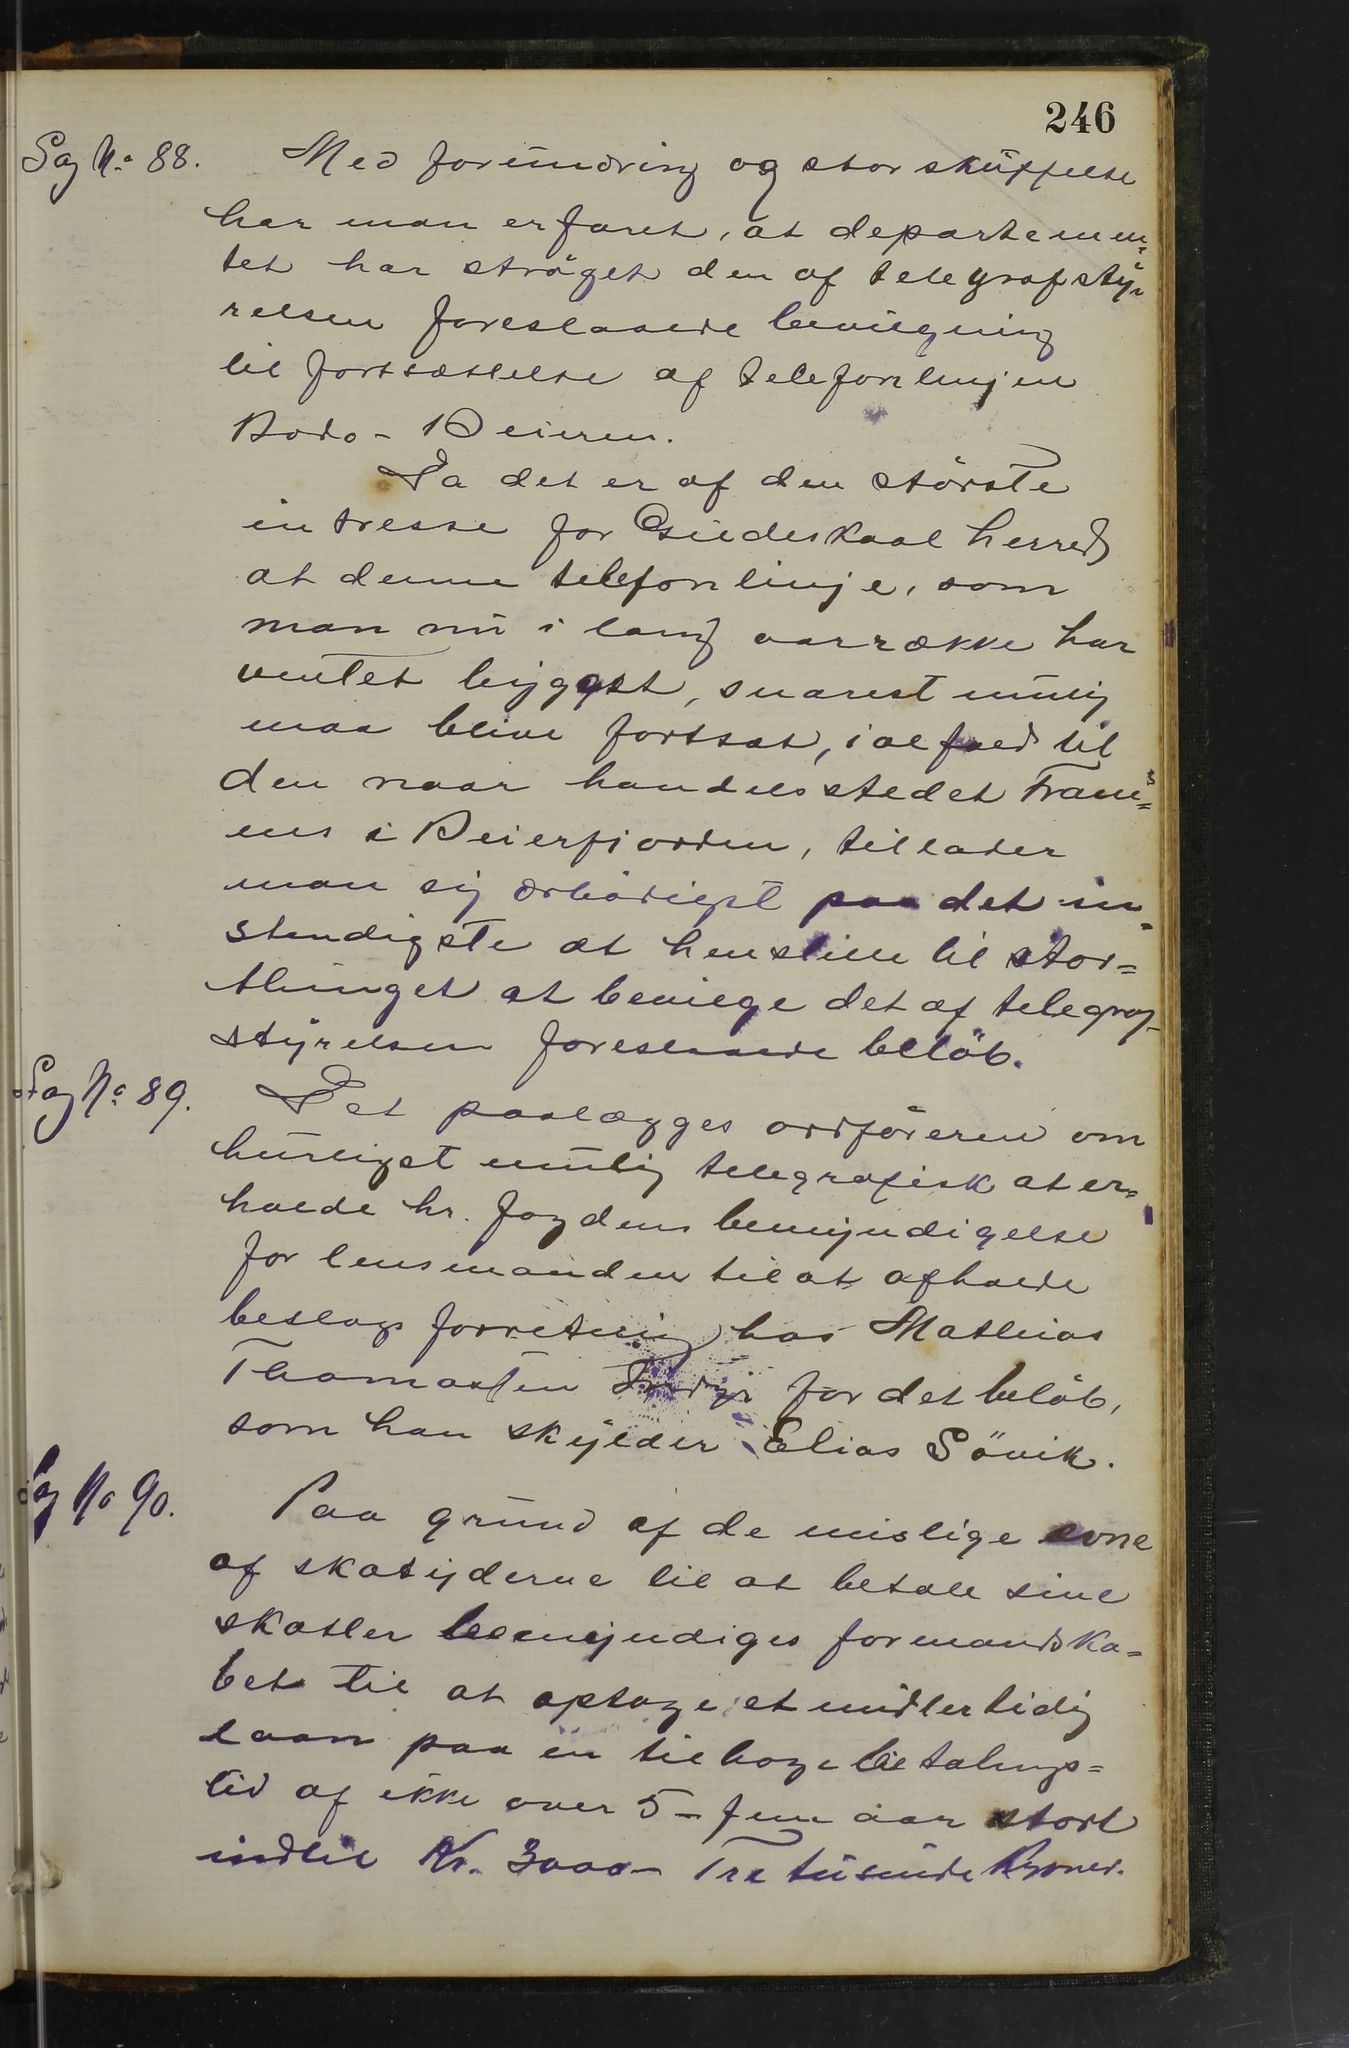 246
Sag No 88. Med forundring og stor skuffelse
har man erfaret, at departemen=
tet har ströget den af telegrafsty=
relsen foreslaaede bevilgning
til fortsættelse af telefonlinjen
Bodo - Beieren.
Da det er af den störste
intresse for Gildeskaal herred
at denne telefonlinje, som
man nu i lang aarrække har
ventet bygget, snarest mulig
maa blive fortsat, ialfald til
den naar handelsstedet Tram=
ens i Beierfjorden, tillader
man sig ærbödigst paa det in=
stendigste at henstille til stor=
thinget at bevilge det af telegraf-
styrelsen foreslaaede belöb.
Sag No 89. Det paalægges ordföreren om
hurtigst mulig telegrafisk at er=
holde hr. fogdens bemyndigelse
for lensmanden til at afholde
beslagsforretning hos Mathias
Thomassen for det belöb,
som han skylder Elias Sövik.
Sag No 90. Paa grund af de mislige evne
af skatyderne til at betale sine
skatter bemyndiges formandska=
bet til at optage et midlertidig
laan paa en tilbagebetalings=
tid af ikke over 5 - fem aar stort
indtil Kr. 3000 - Tre tusinde Kroner.